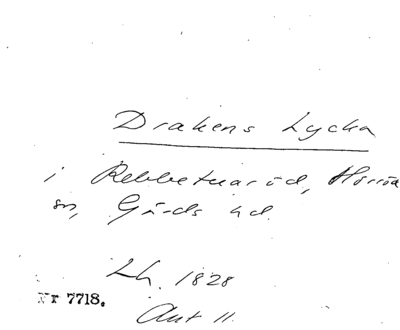 Drakens Lycka
i Rebbetuaröd, Hörröd
sn, Gärds hd.
Lh. 1828
Nr 7718.
Aut 11.